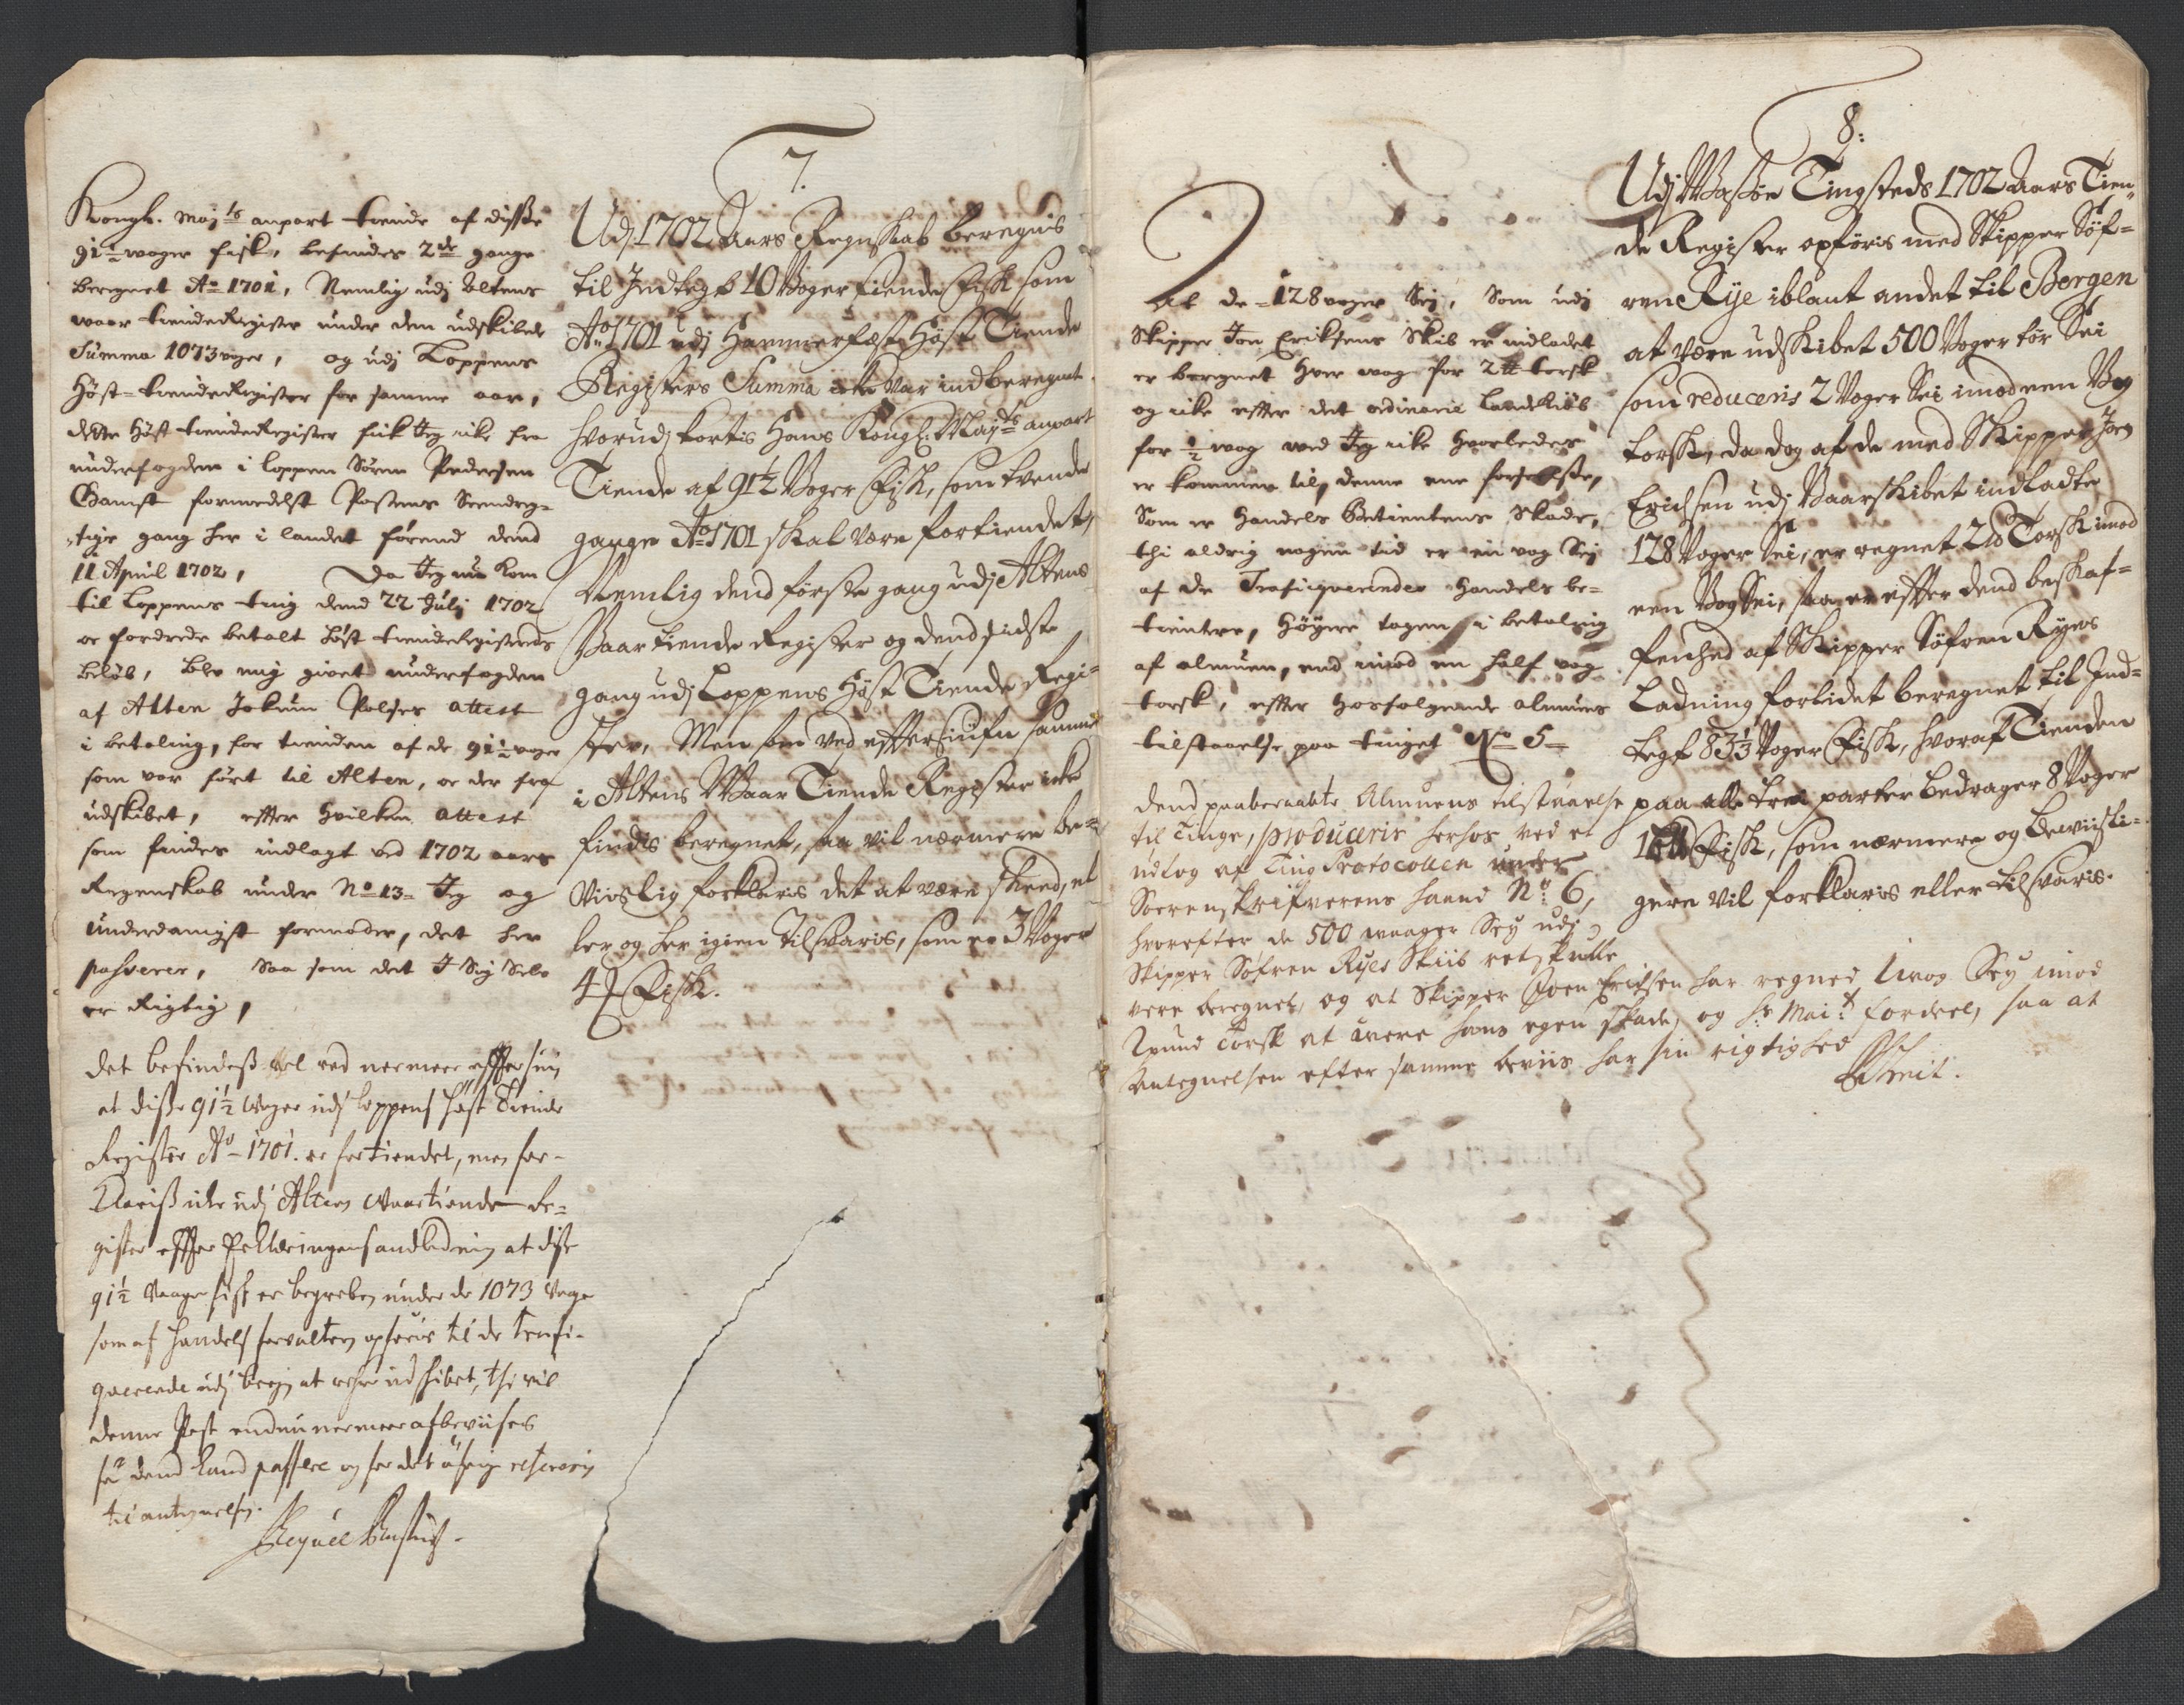 7.
Kongl. Maj.ts anpart tiende af disse
91½ woger fisk, befindes 2de gange
beregnet Ao 1701, Nemlig udj Altens
waar tiende Register under den udskibede
Summa 1073 woger, og udj Loppens
Høst-tiende Register for samme aar,
dette Høst tiende Register fik Jeg icke fra
underfogden i Loppen Søren Pedersen
Gamst formedelst Postens Seendreg-
tige gang her i landet førend dend
11 April 1702, Da Jeg nu kom
til Loppens ting dend 22 Julj 1702
oc fordrede betalt høst tiende Registerets
beløb, blev mig givet underfogden
af Alten Jokum Polses attest
i betaling, for tienden af de 91½ voger
som var ført til Alten, oc der fra
udskibet, effter hvilken attest
som findes indlagt ved 1702 aars
Regenskab under No 13 Jeg og
underdanigst formoder, det her
passerer, Saa som det I Sig Selv
er Rigtig,
det befindes vel ved nermere effter sjun
at disse 91½ Woger udj Loppens høst Tiende
Register Ao 1701 er fortiendet, men for-
klaris icke udj Altens Waar tiende Re-
gister effter Erklæringens andledning at disse
91½ Waager fisk er begreben under de 1073 Voge
som af handels forvalteren opføris til de trafi-
querende udj bergen at vere udskibet, thi vil
denne Post endnu nermere afbeviises
før dend kand passere og for det øfrige refereris
til antegnelsen.
Udj 1702 Aars Regnskab beregnis
til Indtegt 10 Voger tiende Fisk som
Ao 1701 udj Hammerfæst Høst Tiende
Registers Summa icke var indberegnet,
hvorudj kortis Hans Kongl. May.ts anpart
Tiende af 91½ Voger Fisk, som tvende
gange Ao 1701 skal være fortiendet,
Nemlig dend første gang udj Altens
Vaar tiende Register og dend sidste
gang udj Loppens Høst Tiende Regi-
ster, Men som ved efftersiufn samme
i Altens Waar Tiende Register icke
findis beregnet, saa vil nærmere be-
viislig forklaris det at være skeed, el
ler og her igien tilsvaris, som er 3 Voger
Fisk.
8:
At de 128 woger Sej, Som udj
Skipper Jon Eriksens Skib er indladet
er beregnet hver wog for 2 ℔ torsk
og icke effter det ordinarie Landkiøb
for ½ wog wed Jeg icke hvorledes
er kommen til, denne ene forseelse,
Som er Handels Betientens Skade,
thi aldrig nogen tid er en vog Sej
af de Trafiqverendes Handels be-
tientere, høyere tagen i betaling
af almuen, end imod en half vog
torsk, effter hosfølgende almues
tilstaaelse paa tinget No 5
dend paaberaabte Almuens tilstaaelse
til Tinge, produceris herhos ved et
udtog af Ting Protocollen under
Sorenskrifverens haand No 6,
hvorefter de 500 waager Sey udj
Skipper Søfren Ryes Skiib ret skulle
vere beregnet, og at Skipper Joen Erichsen har regned 1 wog Sey imod
2 pund Torsk at were hans egen skade, og Hs Mai.t fordeel, saa at
Antegnelsen efter samme beviis har sin rigtighed
Udj Masøe Tingsteds 1702 Aars Tien-
de Register opføris med Skipper Søf-
ren Rye iblant andet til Bergen
at være udskibet 500 Voger tør Sei
som reduceris 2 Voger Sei imod een Vog
torsk, da dog af de med Skipper Joen
Erichsen udj Vaarskibet indladte
128 Voger Sei, er regnet 2 ℔ Torsk imod
een Vog Sei, saa er effter dend beskaf-
fenhed af Skipper Søfren Ryes
Ladning forlidet beregnet til Ind-
tegt 83⅓ Voger Fisk, hvoraf Tienden
paa alle trei parter bedrager 8 Voger
Fisk, som nærmere og beviisli-
gere vil forklaris eller tilsvaris.